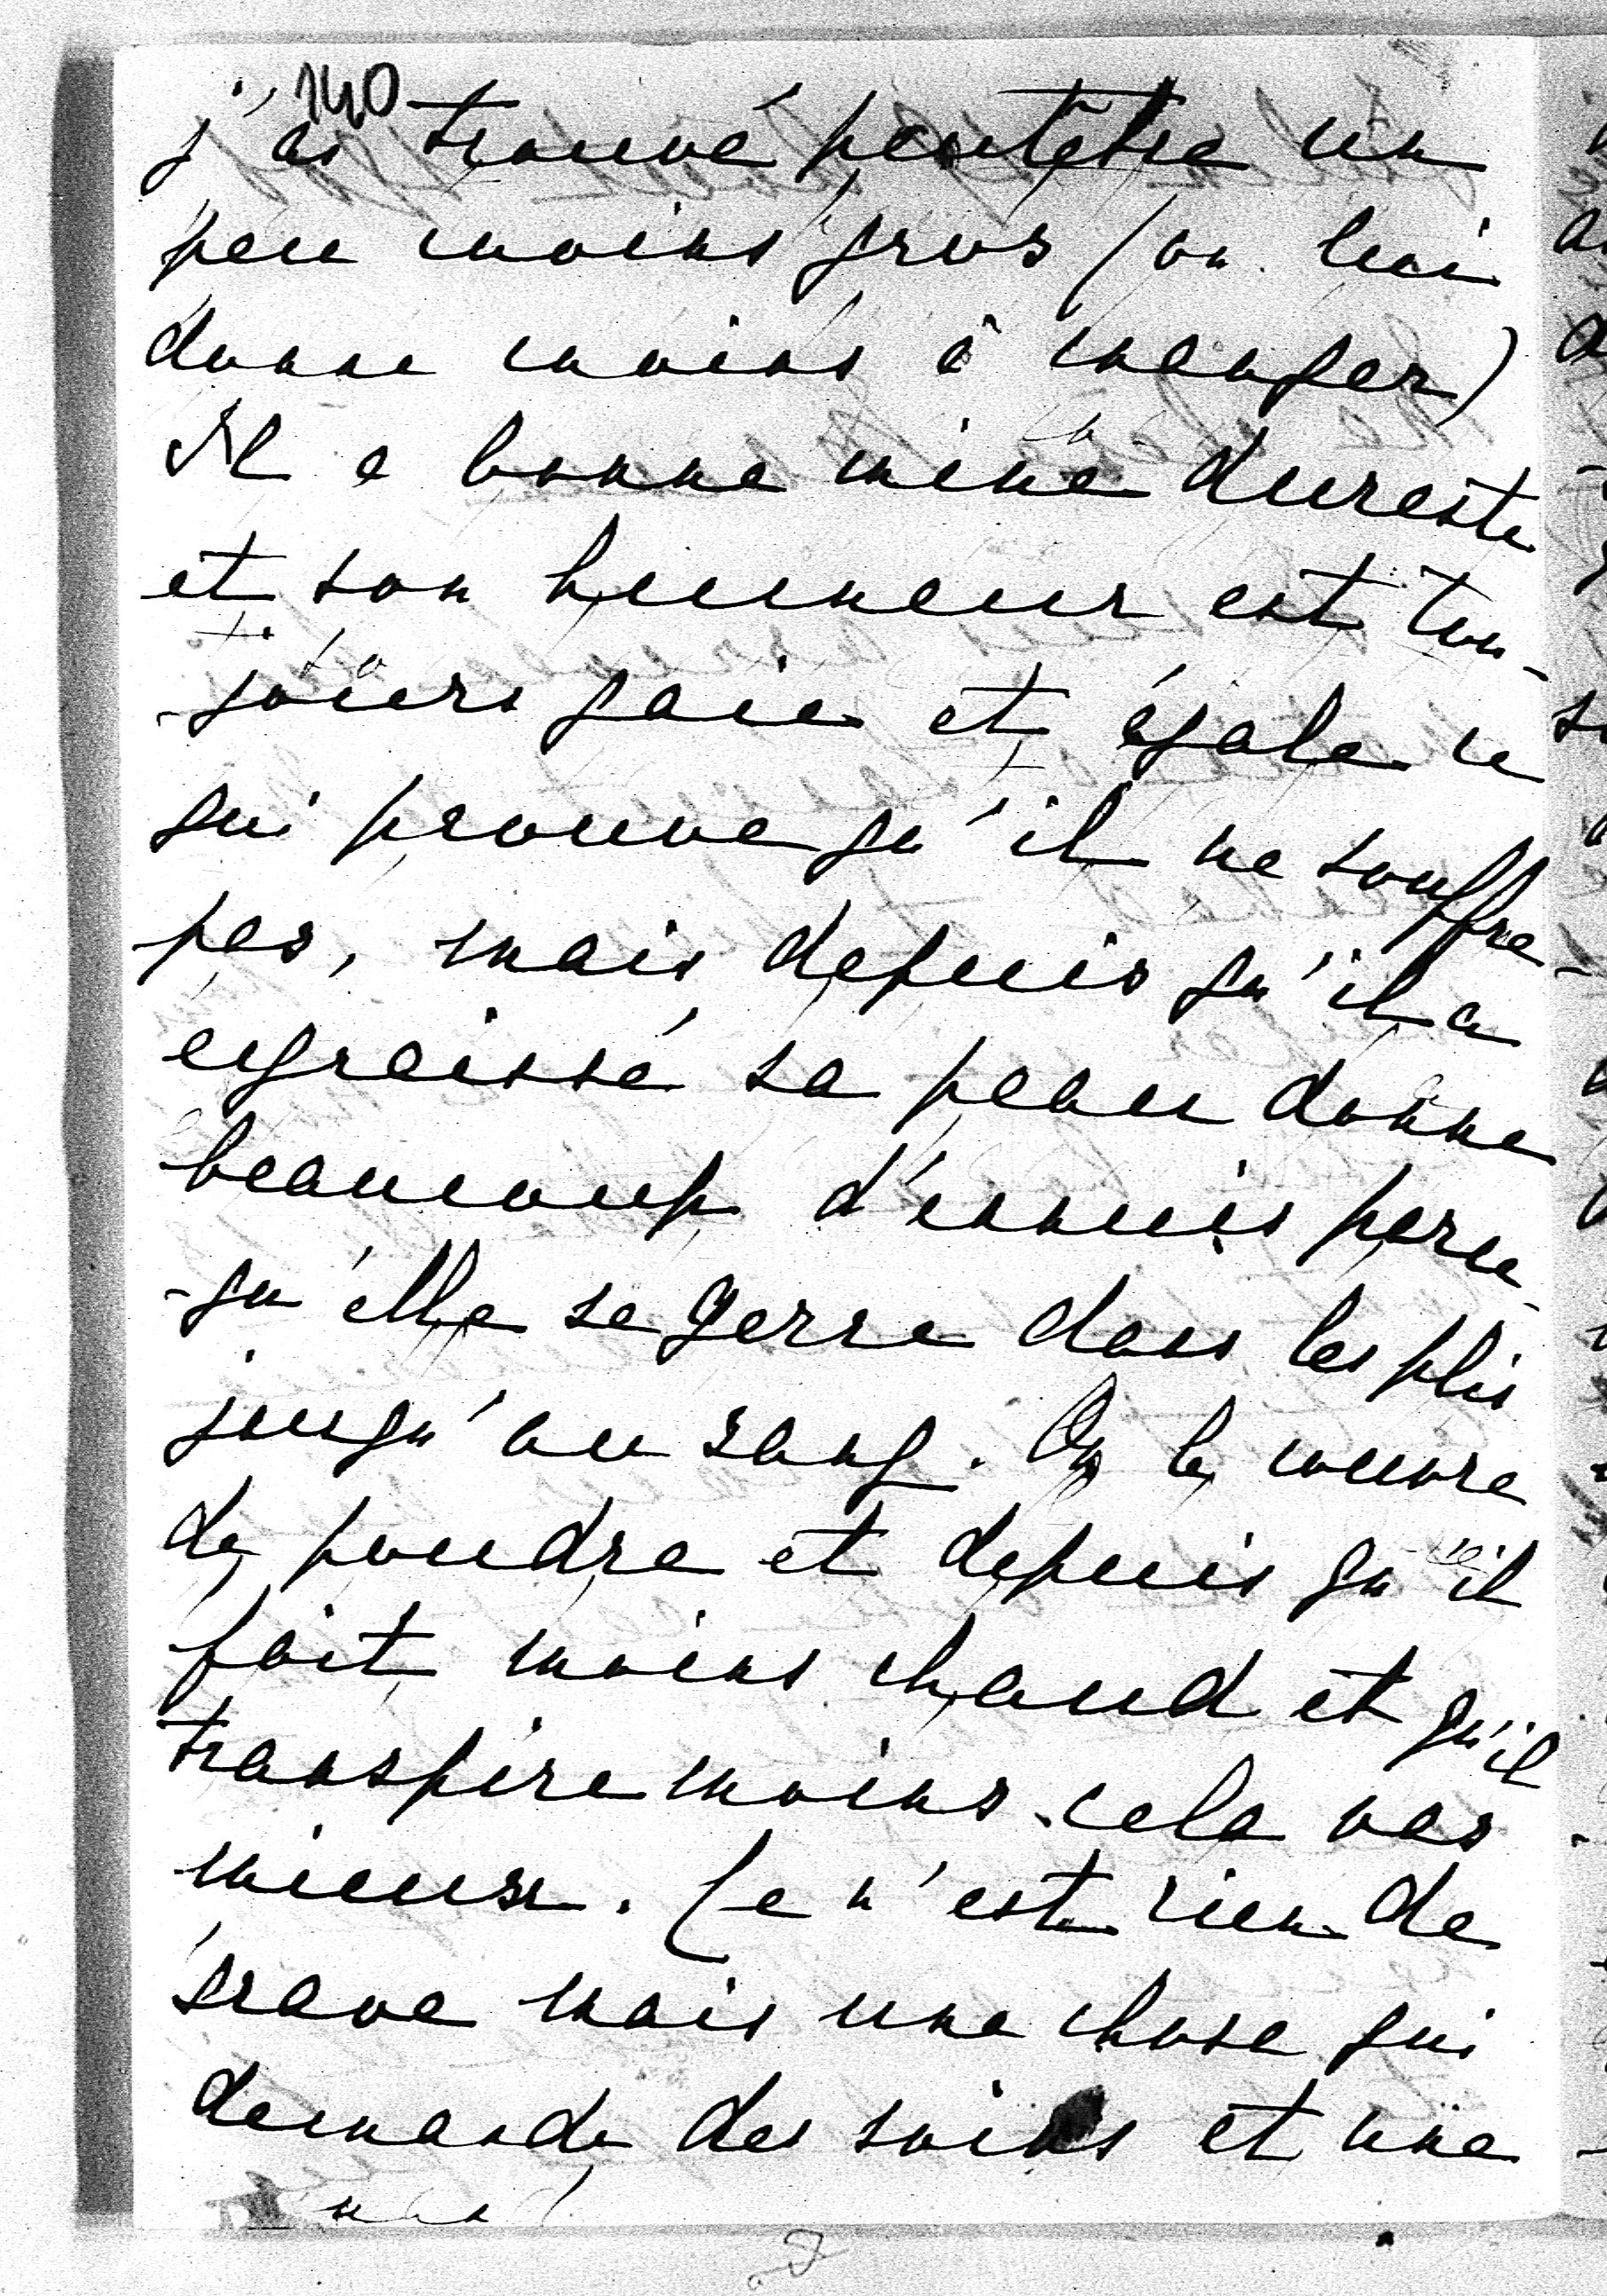 140
j'ai trouvé peutêtre un
peu moins gros (on lui
donne moins à manger)
Il a bonne mine dureste
et son humeur est tou-
-jours gaie et égale ce
qui prouve qu'il ne souffre
pas, mais depuis qu'il a
engraissé sa peau donne
beaucoup d'ennuis parce-
-qu'elle se gerce dans les plis
jusqu'au sang. On le couvre
de poudre et depuis qu'il
fait moins chaud et qu'il
transpire moins cela vas
mieux. Ce n'est rien de
grave mais une chose qui
demande des soins et une